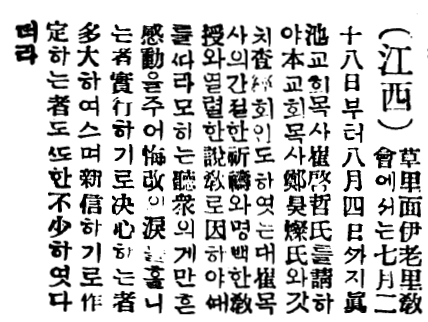 (江西)草里面伊老里敎
會에서는七月二
十八日부터八月四日ᄭᅡ지眞
池교회목사崔啓哲氏를請하
야本교회목사鄭昊燦氏와갓
치査經회인도하엿는대崔목
사의간절한祈禱와명백한敎
授와열렬한說敎로因하야ᄯᅢ
를ᄯᅡ라모히는聽衆의게만흔
感動을주어悔改의淚를흘니
는者實行하기로决心하는者
多大하여스며新信하기로作
定하는者도ᄯᅩ한不少하엿다
더라